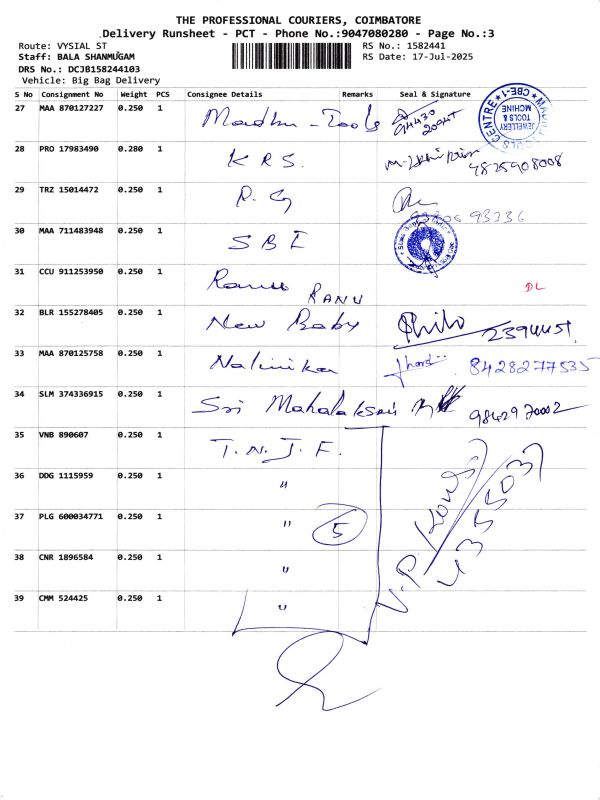 THE PROFESSIONAL COURIERS, COIMBATORE
Delivery Runsheet - PCT - Phone No.:9047080280 - Page No.:3
Route: VYSIAL ST RS No.: 1582441
Staff: BALA SHANMUGAM RS Date: 17-Jul-2025
DRS No.: DCJB158244103
Vehicle: Big Bag Delivery
S No Consignment No Weight PCS Consignee Details Remarks Seal & Signature
27 MAA 870127227 0.250 1 Madhu - Tools 94430
JEWELLERY TOOLS & MCHINE CENTRE CBE-1
28 PRO 17983490 0.280 1 KRS. 9825908008
29 TRZ 15014472 0.250 1 P. G 93236
30 MAA 711483948 0.250 1 SBI
31 CCU 911253950 0.250 1 Ranu RANU DL
32 BLR 155278405 0.250 1 New Baby
33 MAA 870125758 0.250 1 Nalinika 8428277535
34 SLM 374336915 0.250 1 Sri Mahalaksmi 9842970002
35 VNB 890607 0.250 1 T. N. J. F.
36 DDG 1115959 0.250 1 "
37 PLG 600034771 0.250 1 " 5
38 CNR 1896584 0.250 1 "
39 CMM 524425 0.250 1 "
V.P.